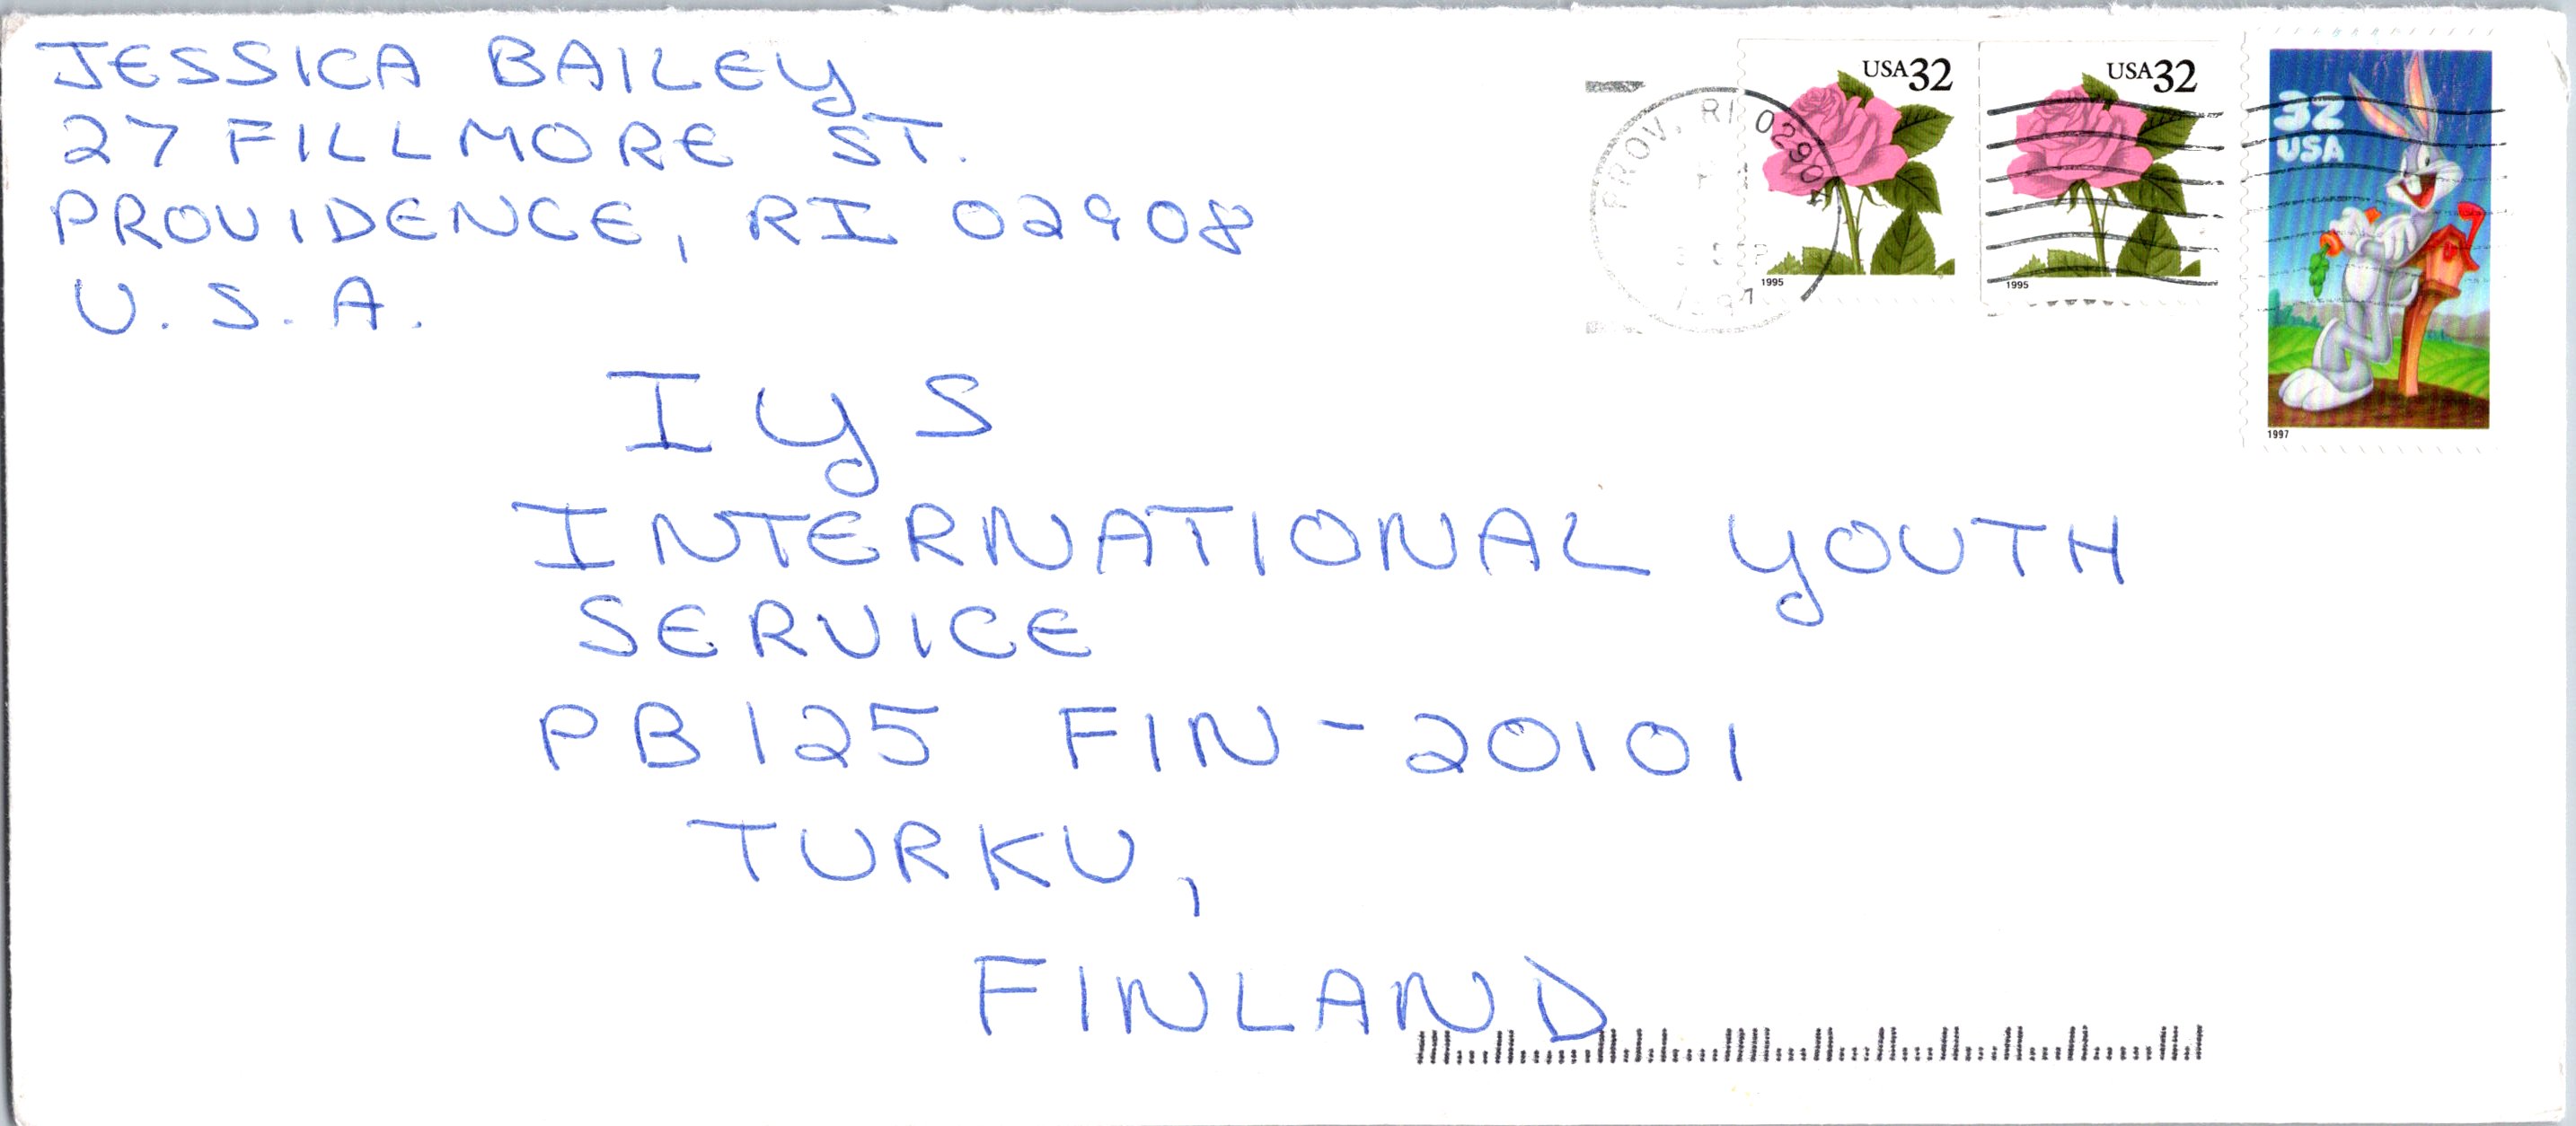 JESSICA BAILEY
27 FILLMORE ST.
PROVIDENCE, RI 02908
U.S.A.
PROV, RI
USA 32
1995
USA 32
1995
32
USA
1997
IYS
INTERNATIONAL YOUTH
SERVICE
PB 125 FIN-20101
TURKU,
FINLAND